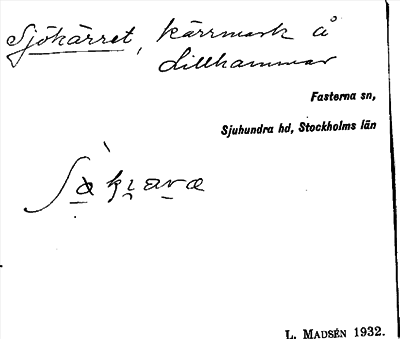 Sjökärret, kärrmark å
Lillhammar
Fasterna sn,
Sjuhundra hd, Stockholms län
L. MADSÉN 1932.